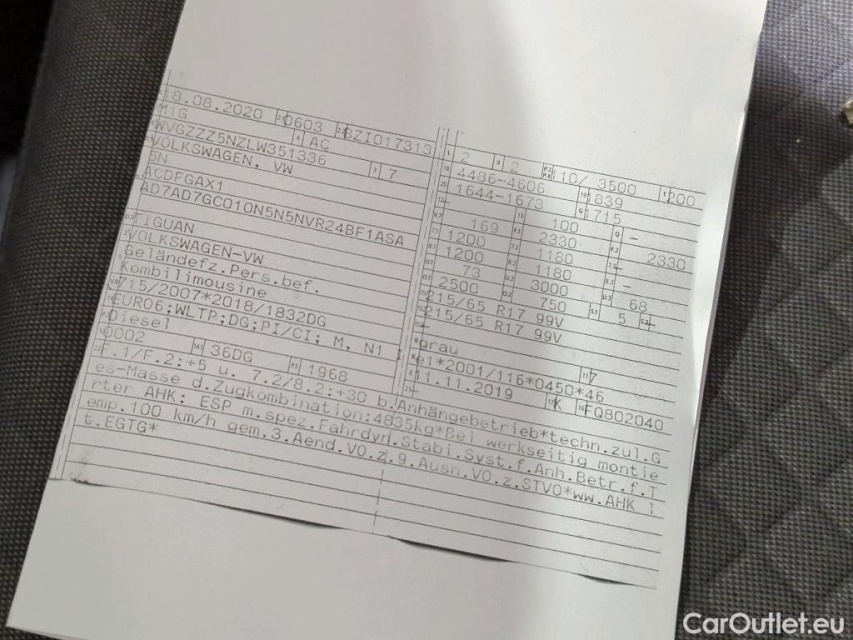 18.08.2020 0603 BZI017313
M1G AC
WVGZZZ5NZLW351336 7
VOLKSWAGEN, VW
5N
ACDFGAX1
AD7AD7GC010N5N5NVR24BF1ASA
TIGUAN
VOLKSWAGEN-VW
Geländefz.Pers.bef.
Kombilimousine
715/2007*2018/1832DG
EURO6;WLTP;DG;PI/CI; M, N1 I
Diesel
0002 36DG 1968
2 2 110/ 3500 200
4486-4606 1839
1644-1673 1715
- 100 -
169 2330 2330
1200 1180 -
1200 1180 -
73 3000 68
2500 750 5 -
215/65 R17 99V
215/65 R17 99V
-
grau 7
e1*2001/116*0450*46
11.11.2019 K FQ802040
F.1/F.2:+5 u. 7.2/8.2:+30 b.Anhängebetrieb*techn.zul.G
es-Masse d.Zugkombination:4835kg*Bei werkseitig montie
rter AHK: ESP m.spez.Fahrdyn.Stabi.Syst.f.Anh.Betr.f.T
emp.100 km/h gem.3.Aend.VO.z.9.Ausn.VO.z.STVO*ww.AHK l
t.EGTG*
CarOutlet.eu